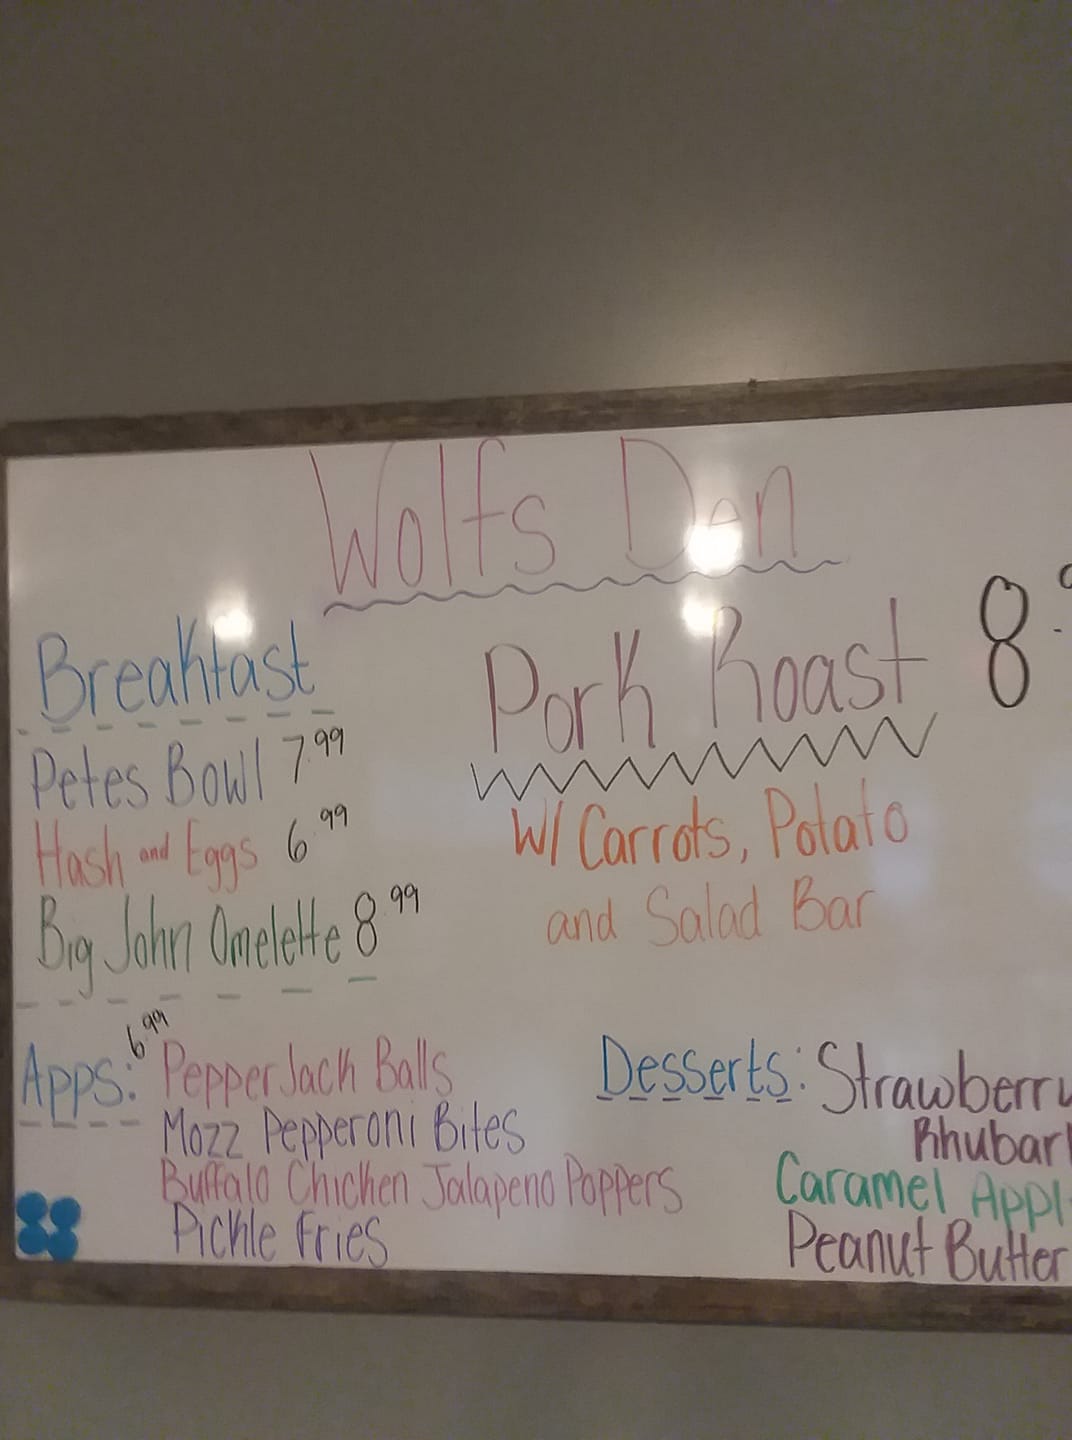 Wolfs Den
Breakfast
Petes Bowl 7.99
Hash and Eggs 6.99
Big John Omelette 8.99
Pork Roast 8.
W/ Carrots, Potato
and Salad Bar
Apps: 6.99
Pepper Jack Balls
Mozz Pepperoni Bites
Buffalo Chicken Jalapeno Poppers
Pickle Fries
Desserts: Strawberry
Rhubar
Caramel Appl
Peanut Butter